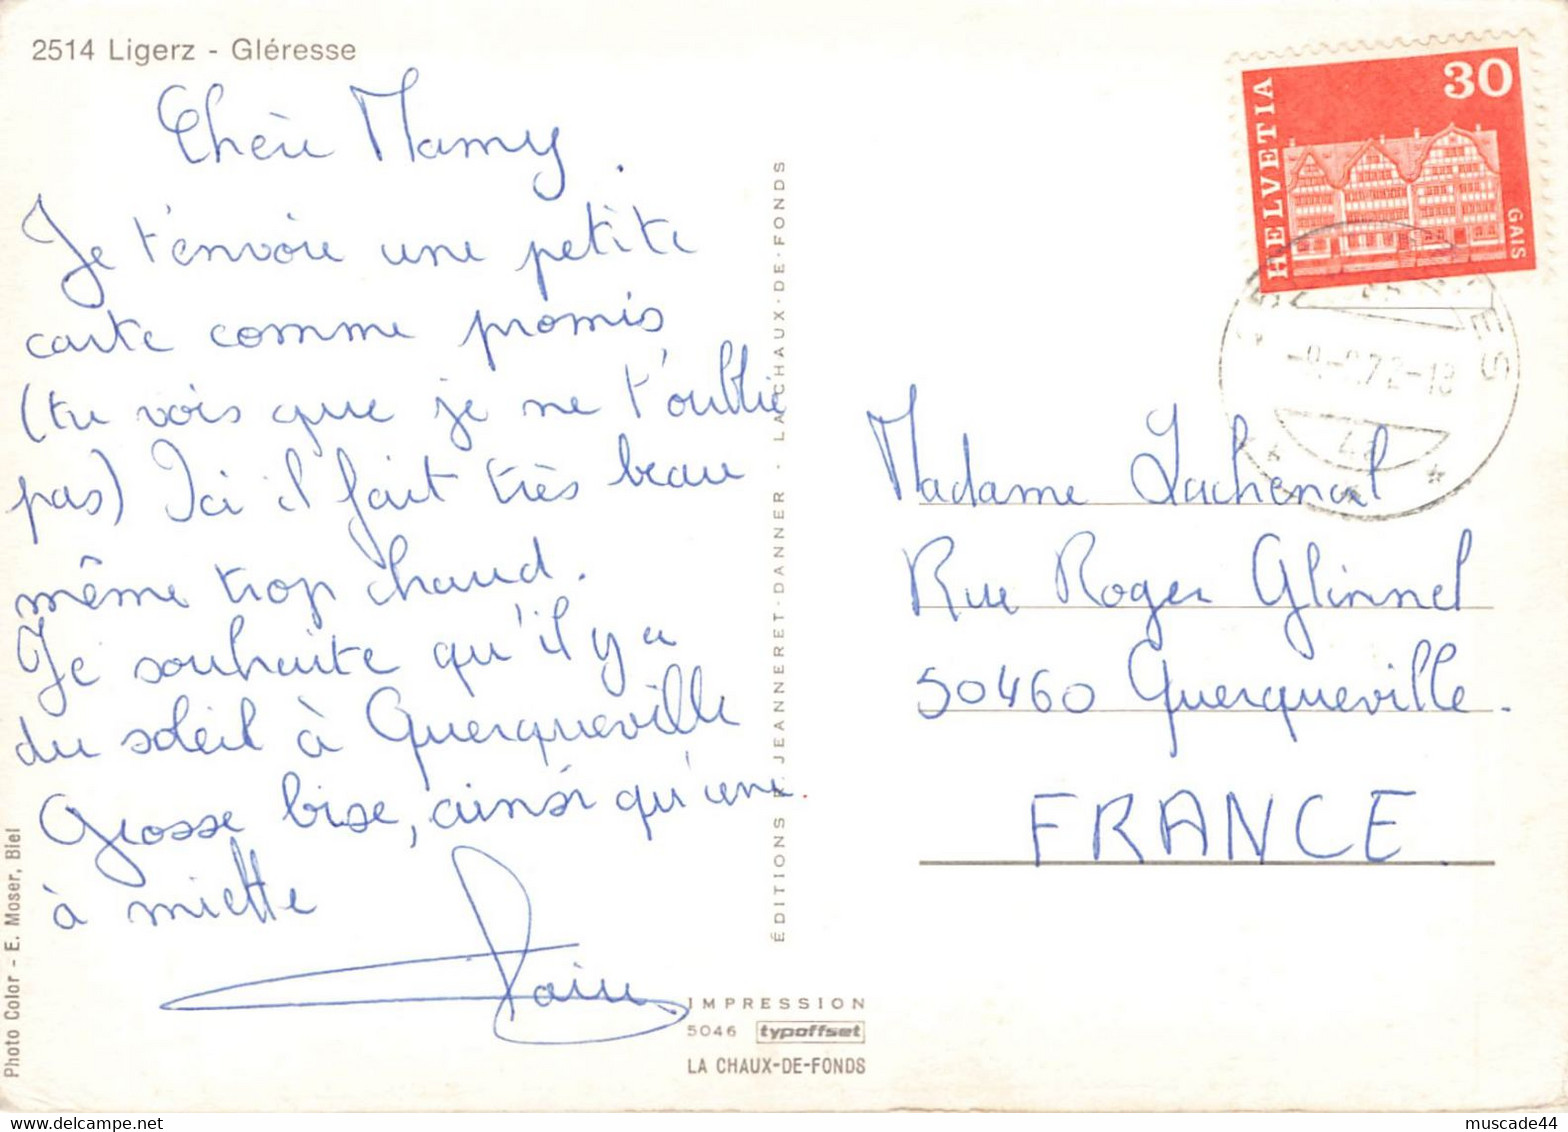 2514 Ligerz - Gléresse
Chère Mamy.
Je t'envoie une petite
carte comme promis
(tu vois que je ne t'oublie
pas) Ici il fait très beau
même trop chaud.
Je souhaite qu'il y a
du soleil à Querqueville
Grosse bise, ainsi qu'une
à miette
Photo Color - E. Moser, Biel
ÉDITIONS F. JEANNERET-DANNER · LA CHAUX-DE-FONDS
IMPRESSION
5046 typoffset
LA CHAUX-DE-FONDS
HELVETIA
30
GAIS
Madame Lachenal
Rue Roger Glinnel
50460 Querqueville.
FRANCE.
www.delcampe.net
muscade44